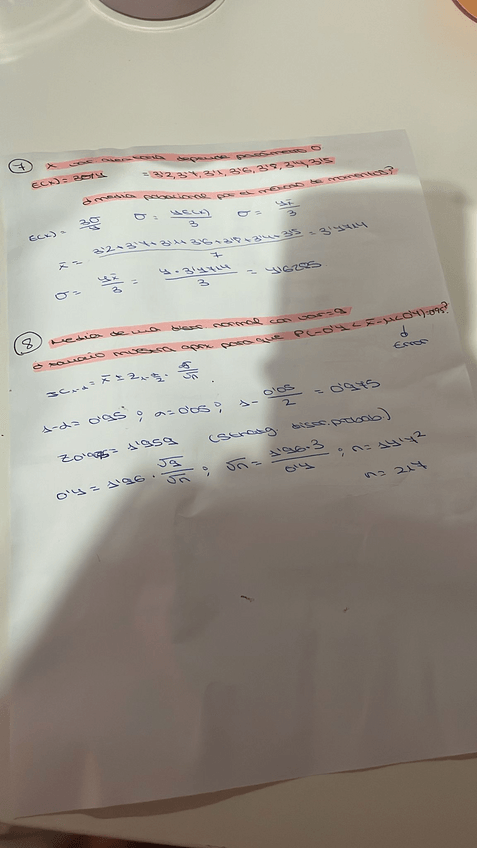 7 X var aleatoria depende parámetro θ
E(X) = 3θ/4 = 3'2, 3'7, 3'4, 3'6, 3'5, 3'4, 3'5
d media poblacional por el método de momentos?
E(X) = 3θ/4 θ = 4E(X)/3 θ = 4x̄/3
x̄ = 3'2+3'7+3'4+3'6+3'5+3'4+3'5/7 = 3'4714
θ = 4x̄/3 = 4·3'4714/3 = 4'6285
8 Media de una distr normal con var=9
d tamaño muestra apr para que P(-0'4 < x̄-μ < 0'4)=0'95?
d
Error
IC1-α = x̄ ± Z1-α/2 · σ/√n
1-α = 0'95 ; α=0'05 ; 1- 0'05/2 = 0'975
Z0'975 = 1'959 (Strateg. distr. probab.)
0'4 = 1'96 · √9/√n ; √n = 1'96·3/0'4 ; n = 14'7²
n = 217